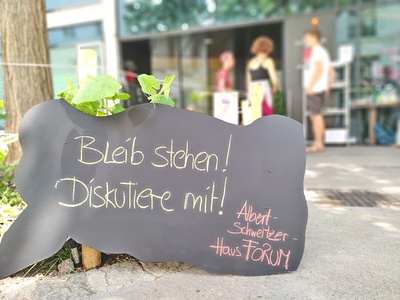 Bleib stehen!
Diskutiere mit!
Albert-
Schweitzer-
Haus FORUM